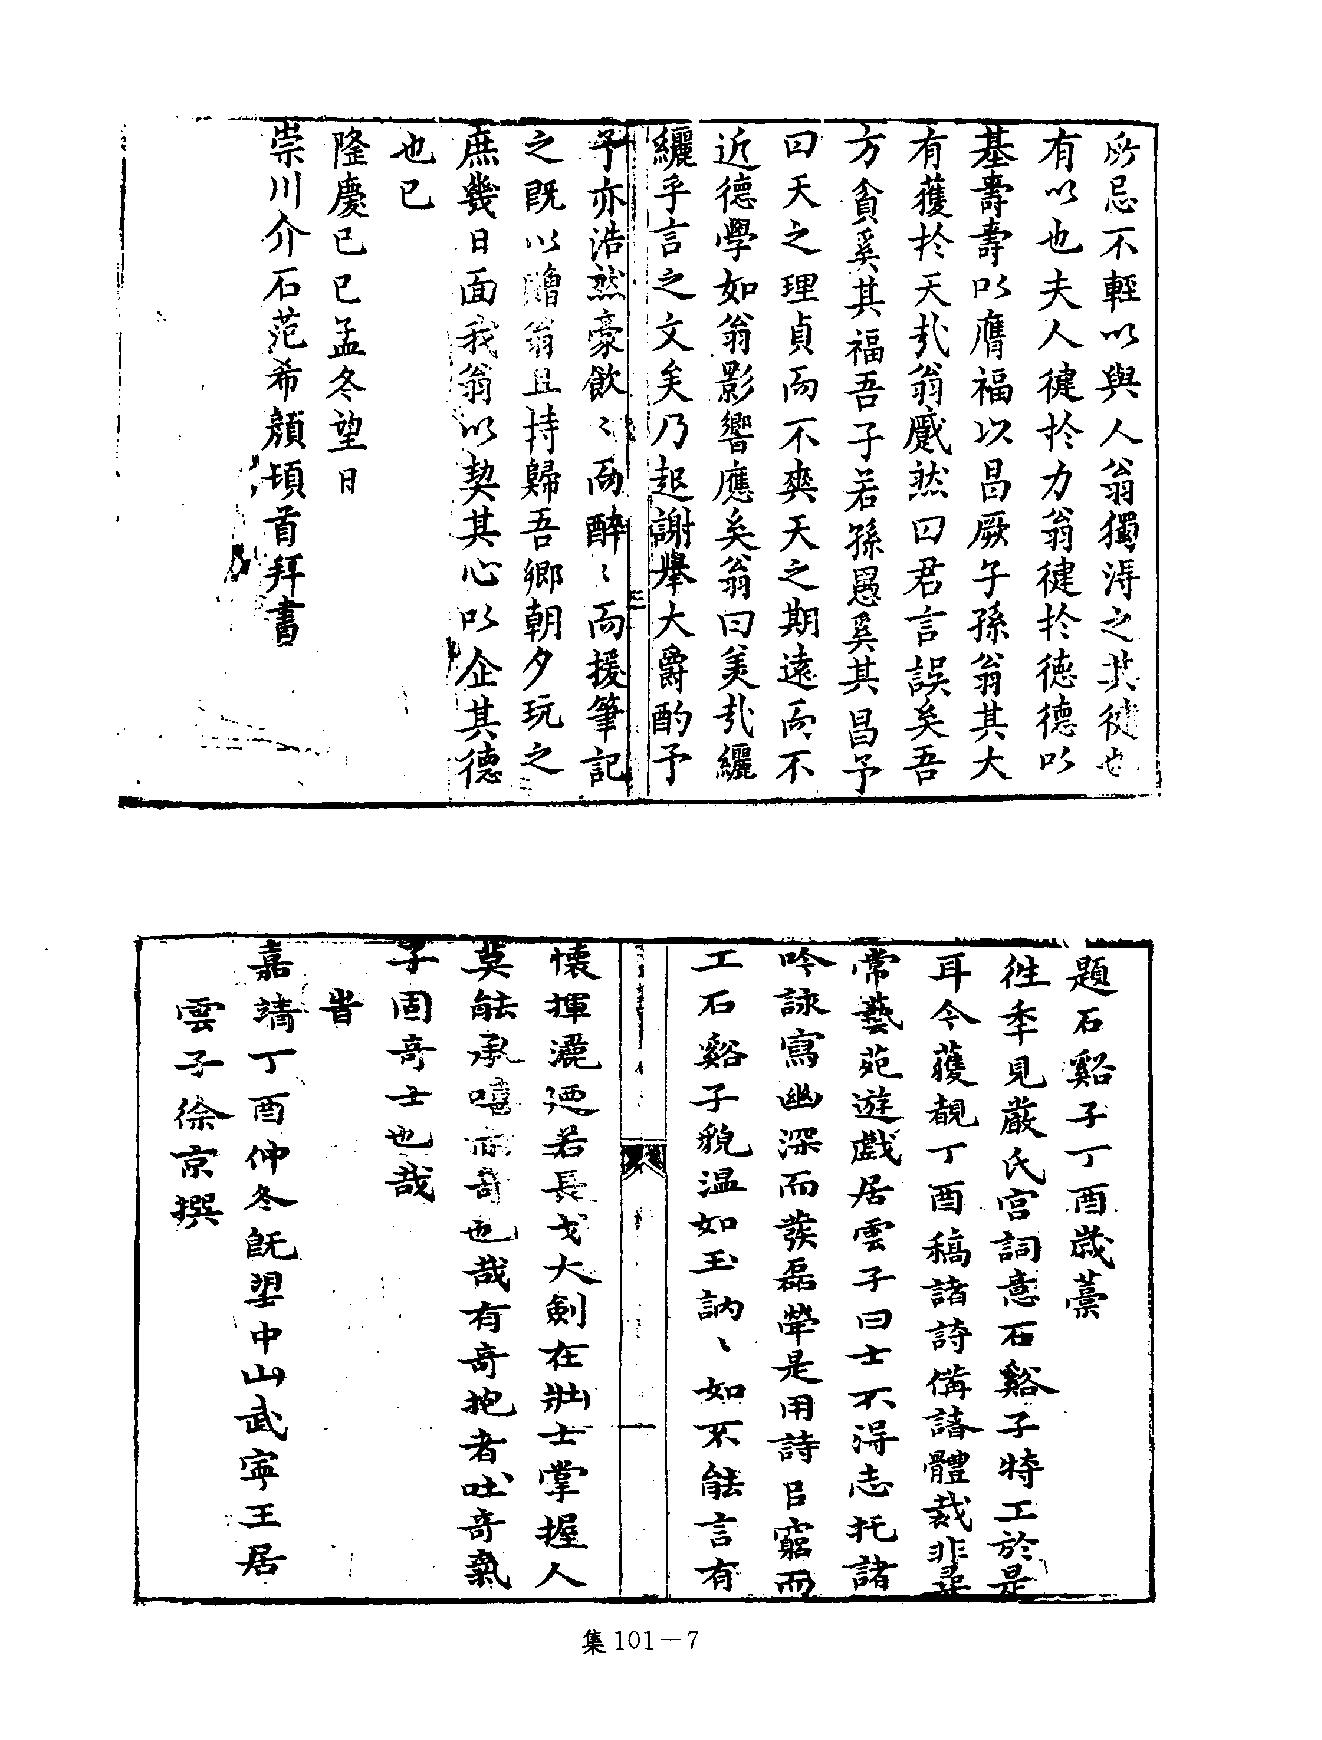 所忌不輕以與人翁獨淂之其徤也
有以也夫人徤扵力翁徤扵德德以
基壽壽以膺福以昌厥子孫翁其大
有獲扵天㢤翁蹙然曰君言誤矣吾
方貪奚其福吾子若孫愚奚其昌予
曰天之理貞而不爽天之期遠而不
近德學如翁影響應矣翁曰美㢤纚
纚乎言之文矣乃起謝舉大爵酌予
予亦浩然豪飲〻而醉〻而援筆記
之既以贈翁且持歸吾鄉朝夕玩之
庶幾日面我翁以契其心以企其德
也已
隆慶己巳孟冬望日
崇川介石范希顏頓首拜書
三
題石谿子丁酉歲藁
徃秊見嚴氏宫詞意石谿子特工於是
耳今獲覩丁酉稿諸詩備諸體裁非尋
常藝苑遊戲居雲子曰士不淂志托諸
吟詠寫幽深而發磊犖是用詩㠯窮而
工石谿子貌温如玉訥〻如不能言有
懷揮灑廼若長戈大劍在壯士掌握人
莫能承嘻而奇也哉有奇抱者吐奇氣
子固奇士也哉
旹
嘉靖丁酉仲冬旣望中山武寧王居
雲子徐京撰
一
集 101－7